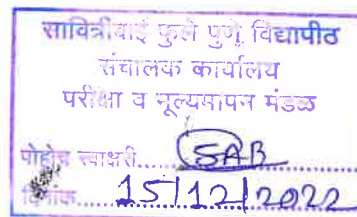 सावित्रीबाई फुले पुणे विद्यापीठ
संचालक कार्यालय
परीक्षा व मूल्यमापन मंडळ
पोहोच स्वाक्षरी.....SAB.....
दिनांक....15/12/2022